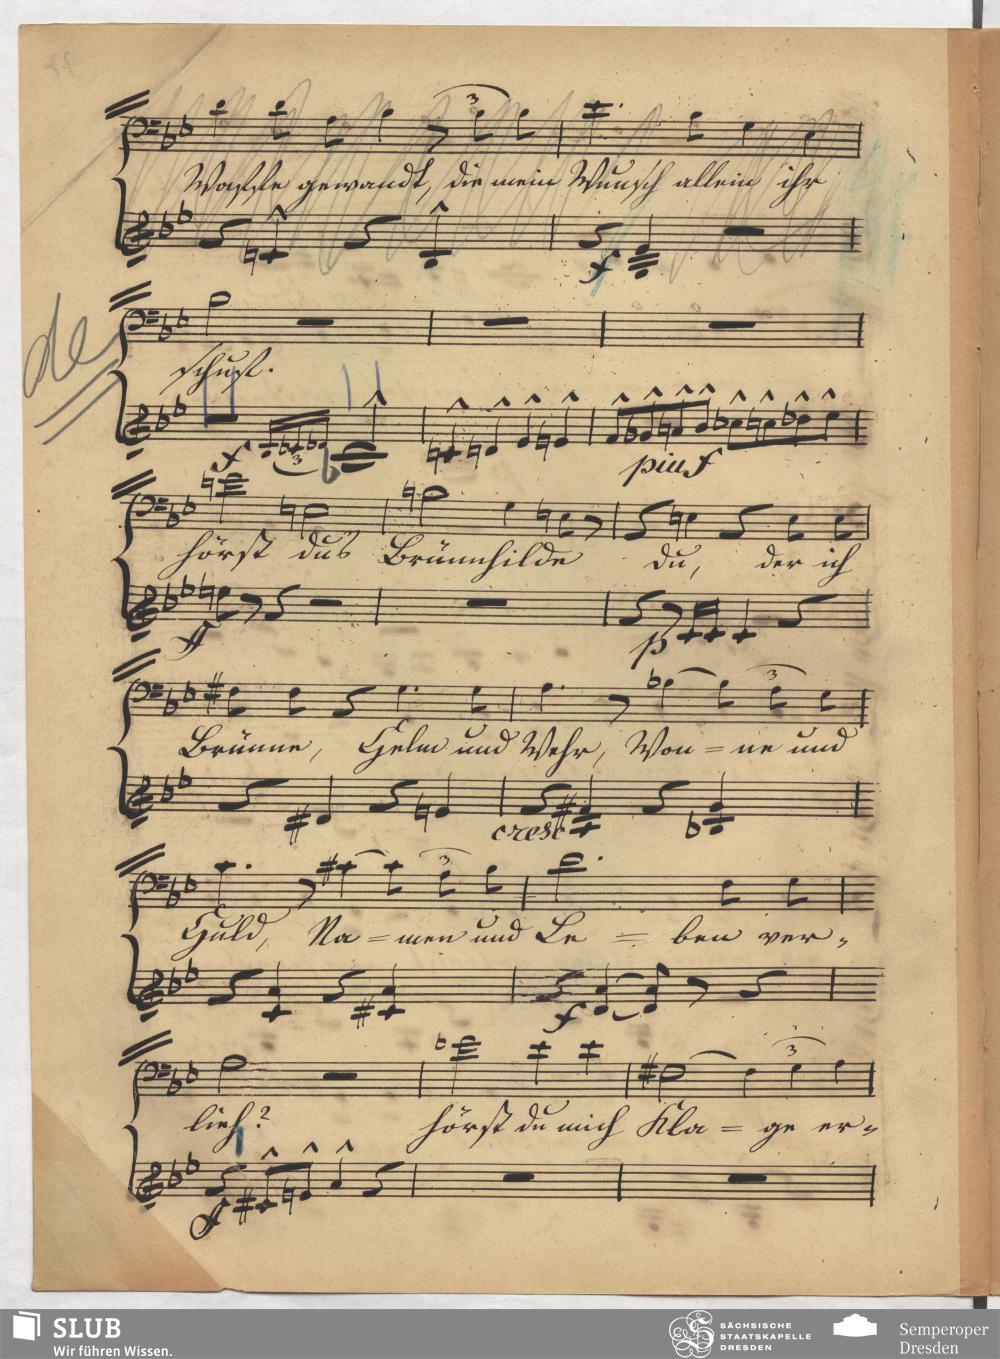 3
Waffe gewandt, die mein Wunsch allein ihr
f
de
schuf.
f 3 piu f
hörst du's Brünnhilde du, der ich
ff p
3
Brünne, Helm und Wehr, Won = ne und
cresc
3
Huld, Na = men und Le = ben ver =
f
3
lieh? hörst du mich Kla = ge er =
ff
SLUB
Wir führen Wissen.
SÄCHSISCHE
STAATSKAPELLE
DRESDEN
Semperoper
Dresden